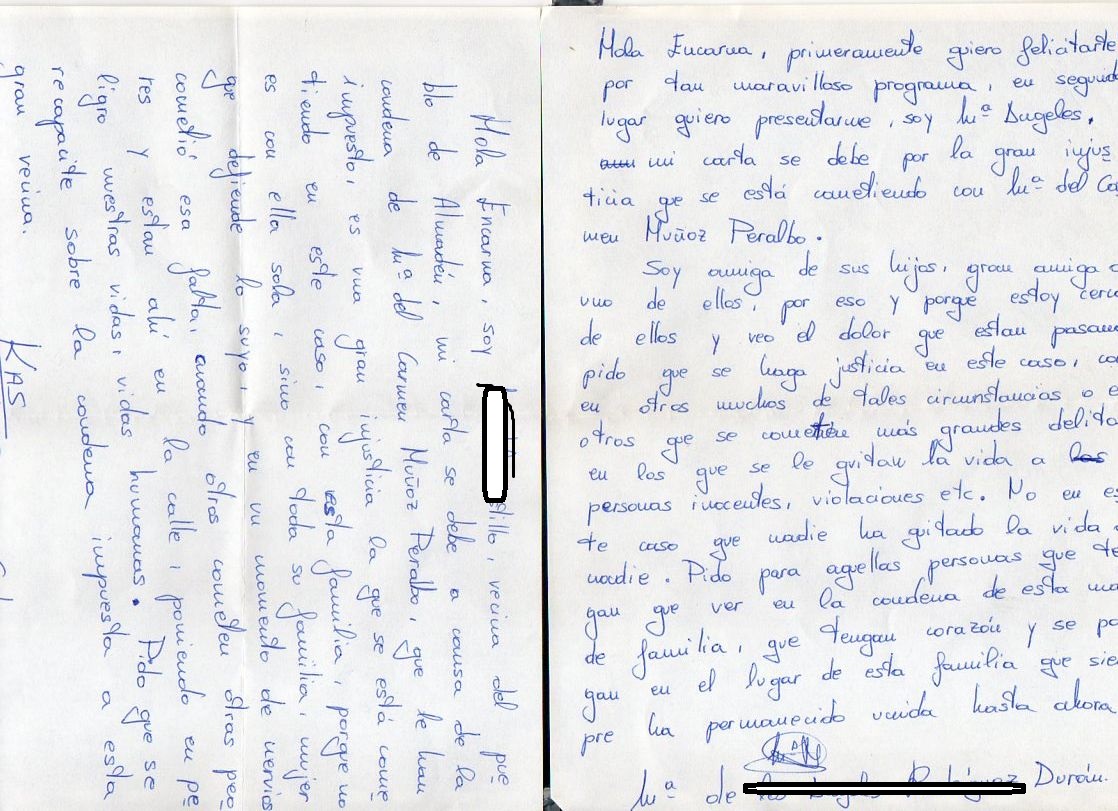 Hola Encarna, soy tillo, vecina del pue
blo de Almadén, mi carta se debe a causa de la
condena de Mª del Carmen Muñoz Peralbo, que le han
impuesto, es una gran injusticia la que se está come
tiendo en este caso, con esta familia, porque no
es con ella sola, sino con toda su familia, mujer
que defiende lo suyo, y en un momento de nervios
cometió esa falta, cuando otros cometen otras peo
res y estan ahi en la calle, poniendo en pe
ligro nuestras vidas, vidas humanas. Pido que se
recapacite sobre la condena impuesta a esta
gran vecina.
KAS
Hola Encarna, primeramente quiero felicitarte
por tan maravilloso programa, en segund
lugar quiero presentarme, soy Mª Angeles.
mi carta se debe por la gran injus
ticia qe se está cometiendo con Mª del Ca
men Muñoz Peralbo.
Soy amiga de sus hijos, gran amiga d
uno de ellos, por eso y porque estoy cerc
de ellos y veo el dolor que estan pasan
pido que se haga justicia en este caso, co
en otros muchos de tales circunstancias o e
otros que se cometen más grandes delito
en los que se le quitan la vida a las
personas inocentes, violaciones etc. No en es
te caso que nadie ha quitado la vida
nadie. Pido para aquellas personas que te
gan que ver en la condena de esta ma
de familia, que tengan corazón y se po
gan en el lugar de esta familia que siem
pre ha permanecido unida hasta ahora
Mª de Durán.